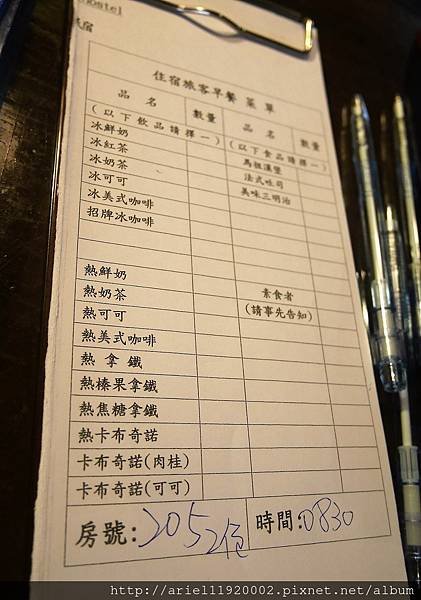 hostel
民宿
住宿旅客早餐 菜 單
品 名 數量 品 名 數量
(以下飲品請擇一) (以下食品請擇一)
冰鮮奶 馬祖漢堡
冰紅茶 法式吐司
冰奶茶 美味三明治
冰可可
冰美式咖啡
招牌冰咖啡
熱鮮奶
熱奶茶 素食者
熱可可 (請事先告知)
熱美式咖啡
熱 拿 鐵
熱榛果拿鐵
熱焦糖拿鐵
熱卡布奇諾
卡布奇諾(肉桂)
卡布奇諾(可可)
房號:205 2份 時間:0830
http://ariel11920002.pixnet.net/album